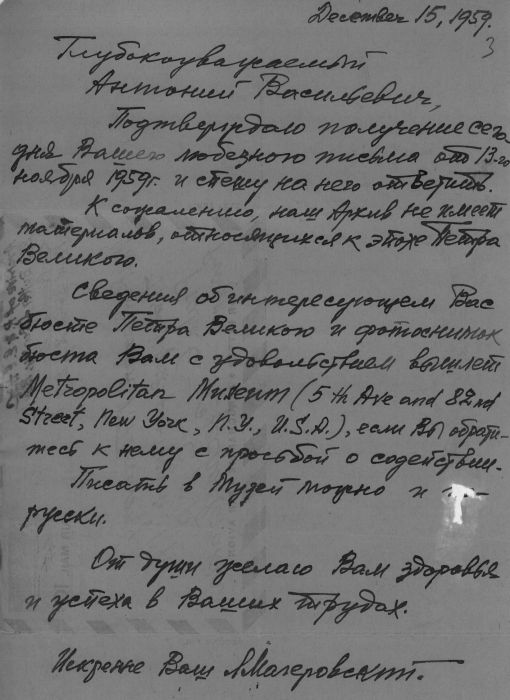 December 15, 1959.
3
Глубокоуважаемый
Антоний Васильевич,
Подтверждаю получение сего-
дня Вашего любезного письма от 13-го
ноября 1959г. и спешу на него ответить.
К сожалению, наш Архив не имеет
материалов, относящихся к эпохе Петра
Великого.
Сведения об интересующем Вас
бюсте Петра Великого и фотоснимок
бюста Вам с удовольствием вышлет
Metropolitan Museum (5th Ave and 82nd
Street, New York, N.Y., U.S.A.), если Вы обрати-
тесь к нему с просьбой о содействии.
Писать в Музей можно и
русски.
От души желаю Вам здоровья
и успеха в Ваших трудах.
Искренне Ваш Л Магеровский.